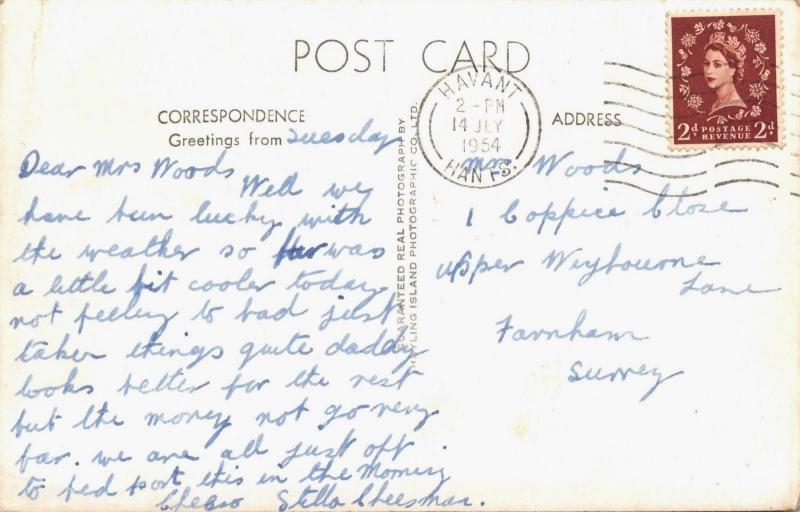 POST CARD
CORRESPONDENCE
Greetings from Tuesday
Dear Mrs Woods
Well we
have bun lucky with
the weather so far was
a little bit cooler today
not feeling to bad just
taken things quite daddy
looks better for the rest
but the money not go very
far. we are all just off
to bed post this in the Morning
Cheero Stella Cheesman.
GUARANTEED REAL PHOTOGRAPH BY
HAYLING ISLAND PHOTOGRAPHIC CO., LTD.
HAVANT
2 - PM
14 JLY
1954
HANTS.
ADDRESS
Mrs Woods
1 Coppice Close
Upper Weybourne
Lane
Farnham
Surrey
2d POSTAGE REVENUE 2d